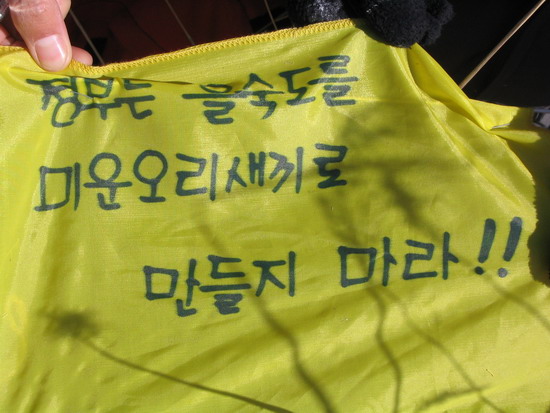 정부는 을숙도를
미운오리새끼로
만들지 마라!!